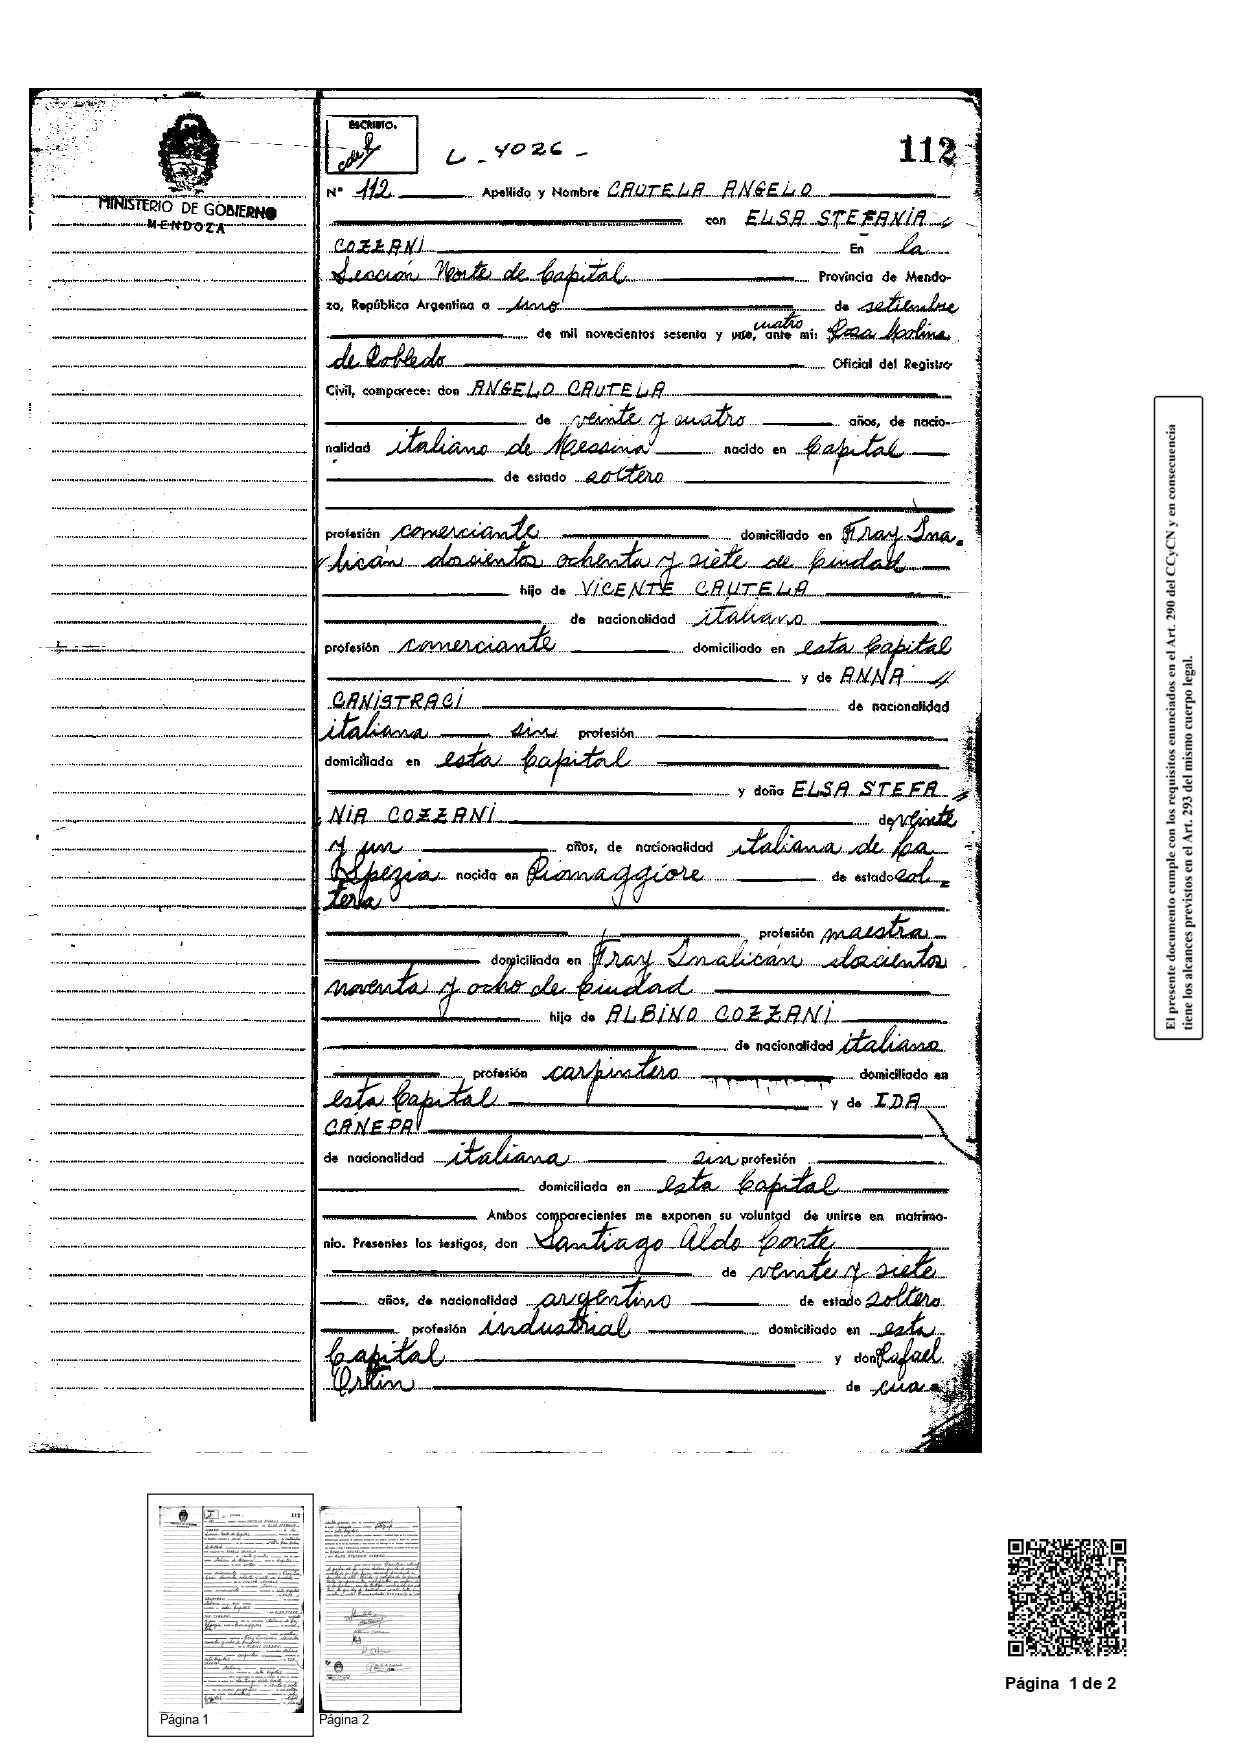 MINISTERIO DE GOBIERNO
MENDOZA
ESCRIBIO.
L - 4026 -
112
N° 112 Apellido y Nombre CAUTELA ANGELO
con ELSA STEFANIA
COZZANI En la
Sección Norte de Capital Provincia de Mendo-
za, República Argentina a uno de setiembre
de mil novecientos sesenta y uno, cuatro ante mi: Rosa Molina
de Robledo Oficial del Registro
Civil, comparece: don ANGELO CAUTELA
de veinte y cuatro años, de nacio-
nalidad italiano de Messina nacido en Capital
de estado soltero
profesión comerciante domiciliado en Fray Ina-
licán doscientos ochenta y siete de Ciudad
hijo de VICENTE CAUTELA
de nacionalidad italiano
profesión comerciante domiciliado en esta Capital
y de ANNA
CANISTRACI de nacionalidad
italiana sin profesión
domiciliada en esta Capital
y doña ELSA STEFA
NIA COZZANI de veinte
y un años, de nacionalidad italiana de La
Spezia nacida en Riomaggiore de estado sol-
tera
profesión maestra
domiciliada en Fray Inalicán doscientos
noventa y ocho de Ciudad
hija de ALBINO COZZANI
de nacionalidad italiano
profesión carpintero domiciliado en
esta Capital y de IDA
CANEPA
de nacionalidad italiana sin profesión
domiciliada en esta Capital
Ambos comparecientes me exponen su voluntad de unirse en matrimo-
nio. Presentes los testigos, don Santiago Aldo Conte
de veinte y siete
años, de nacionalidad argentino de estado soltero
profesión industrial domiciliado en esta
Capital y don Rafael
Ortin de cua-
El presente documento cumple con los requisitos enunciados en el Art. 290 del CCyCN y en consecuencia
tiene los alcances previstos en el Art. 293 del mismo cuerpo legal.
Página 1
Página 2
Página 1 de 2